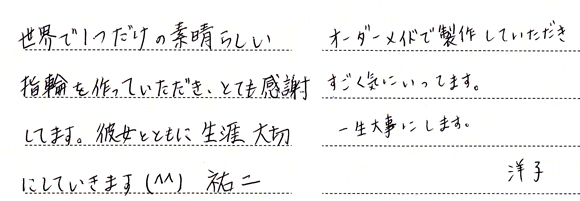 世界で1つだけの素晴らしい
指輪を作っていただき、とても感謝
してます。彼女とともに生涯大切
にしていきます(^^) 祐二
オーダーメイドで製作していただき
すごく気にいってます。
一生大事にします。
洋子